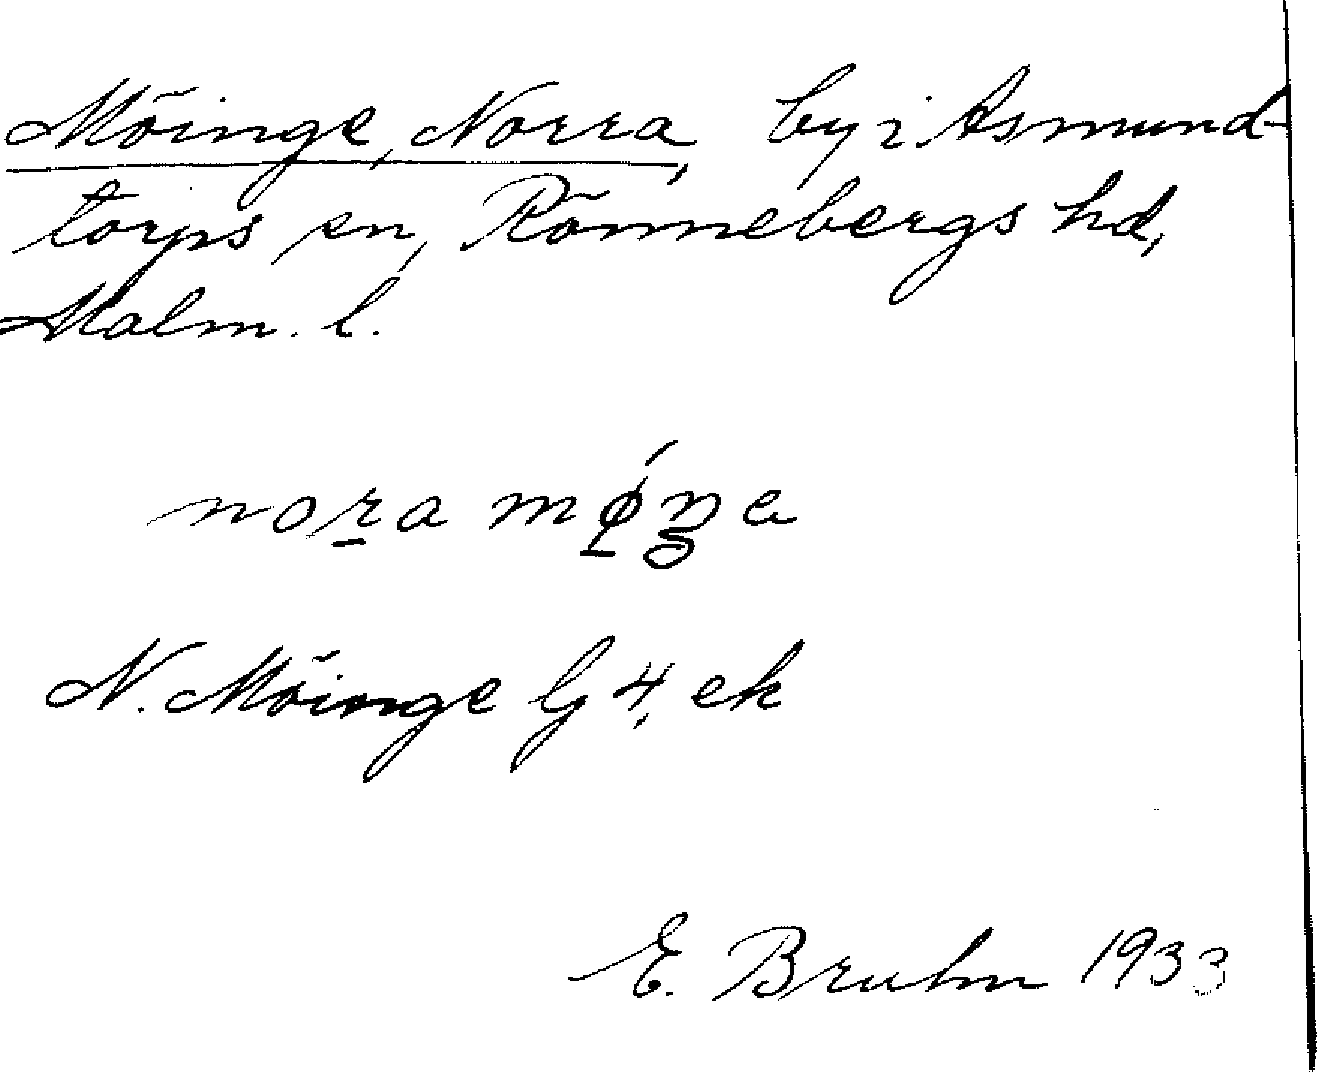 Möinge, Norra, by i Asmund-
torps sn, Rönnebergs hd,
Malm. l.
nora
N. Möinge by 4, ek
E. Bruhn 1933